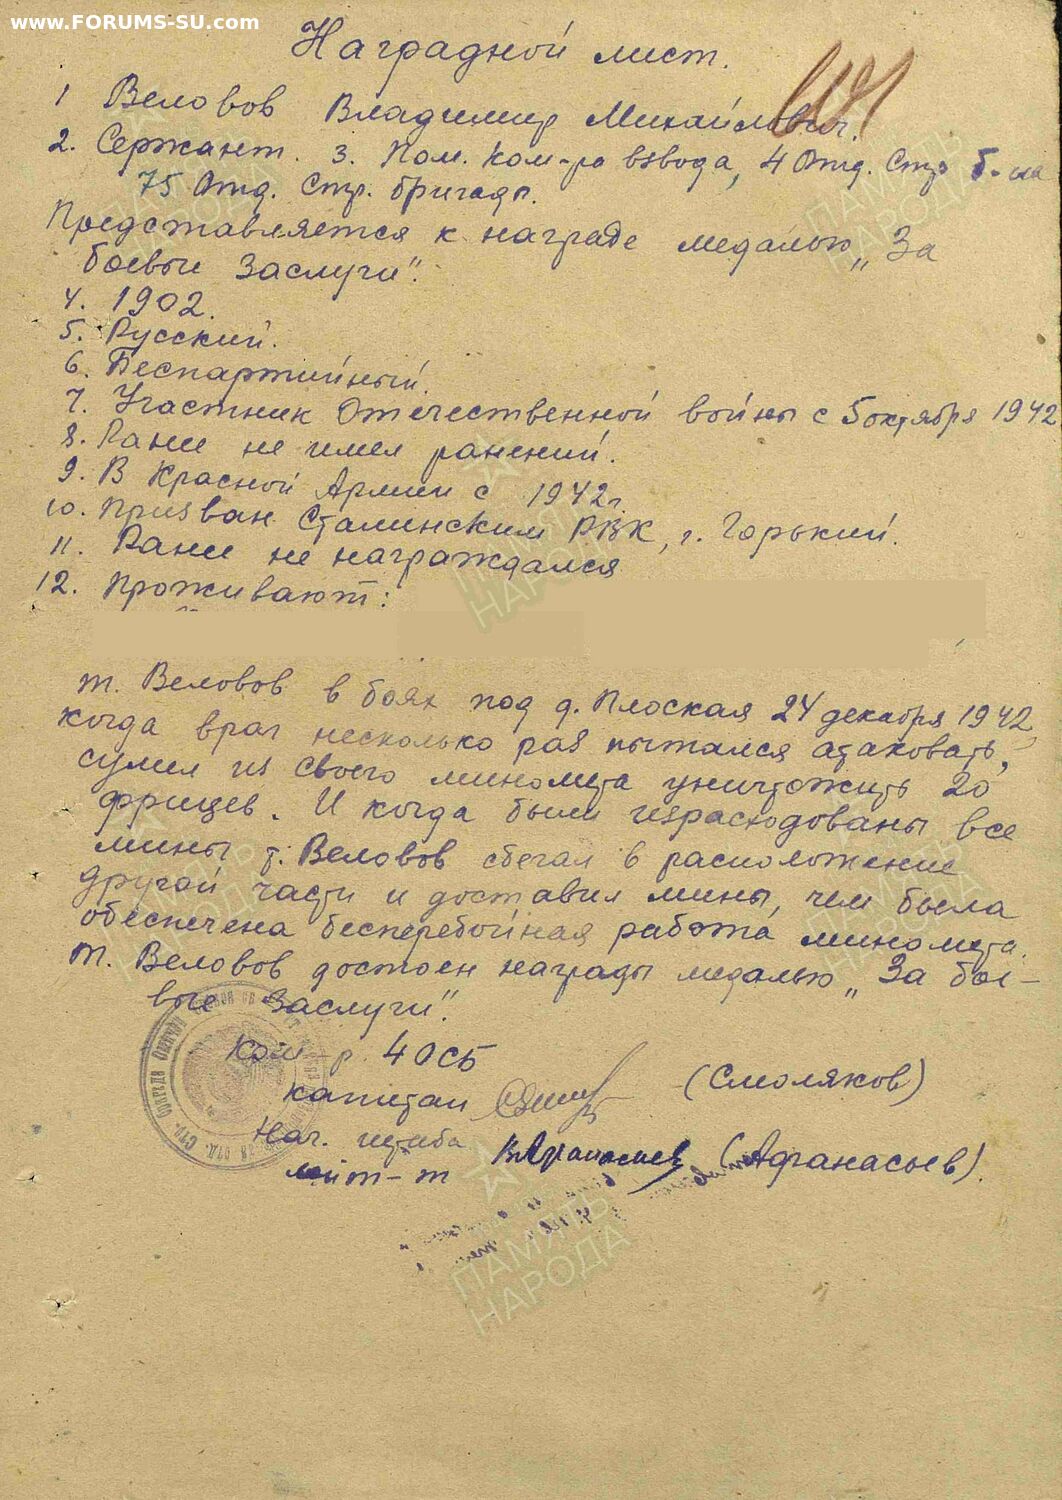 www.FORUMS-SU.com
Наградной лист.
1 Веловов Владимир Михайлович.
2. Сержант. 3. Пом. Ком-ра взвода, 4 Отд. Стр б-на
75 Отд. Стр. бригады.
Представляется к награде медалью „За
боевые Заслуги".
4. 1902.
5. Русский.
6. Беспартийный.
7. Участник Отечественной войны с 5 октября 1942
8. Ранее не имел ранений.
9. В Красной Армии с 1942 г.
10. Призван Сталинским РВК, г. Горький.
11. Ранее не награждался
12. Проживают:
т. Веловов в боях под д. Плоская 24 декабря 1942,
когда враг несколько раз пытался атаковать,
сумел из своего миномета уничтожить 20
фрицев. И когда были израсходованы все
мины т. Веловов сбегал в расположение
другой части и доставил мины, чем была
обеспечена бесперебойная работа миномета.
Т. Веловов достоен награды медалью „За бое-
вые Заслуги".
Ком-р 4 ОСБ
капитан (Смоляков)
Нач. штаба
лейт-т ВАфанасьев (Афанасьев).
ПАМЯТЬ НАРОДА